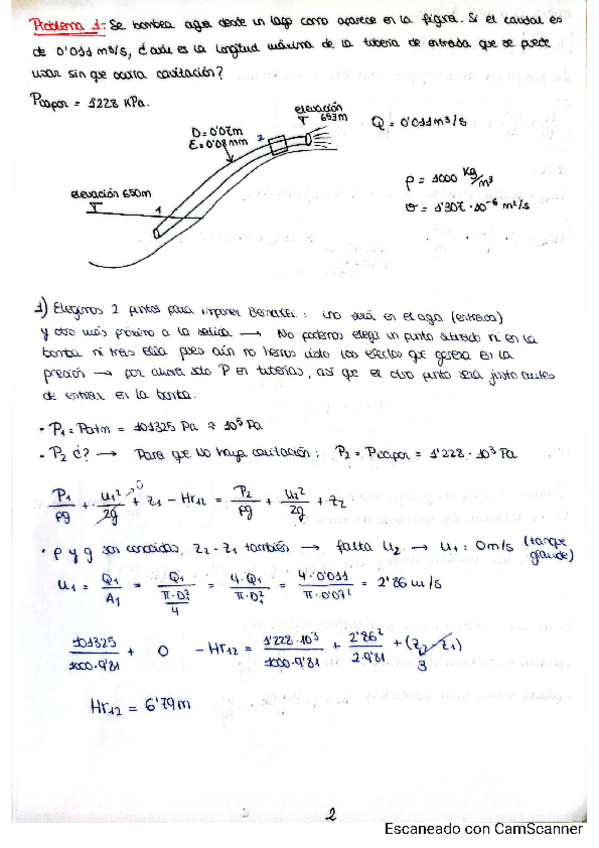 Problema 1: Se bombea agua desde un lago como aparece en la figura. Si el caudal es
de 0'011 m³/s, ¿cuál es la longitud máxima de la tubería de entrada que se puede
usar sin que ocurra cavitación?
Pvapor = 1'228 KPa.
elevación
693m
D=0'07m
E=0'08 mm
2
Q = 0'011 m³/s
elevación 690m
1
ρ = 1000 Kg/m³
υ = 1'307 · 10⁻⁶ m²/s
1) Elegimos 2 puntos para imponer Bernoulli: uno será en el agua (entrada)
y otro más próximo a la salida → No podemos elegir un punto situado ni en la
bomba ni tras ella pues aún no hemos visto los efectos que genera en la
presión → por ahora solo P en tuberías, así que el otro punto será justo antes
de entrar en la bomba.
· P₁ = Patm = 101325 Pa ≈ 10⁵ Pa
· P₂ ¿? → Para que NO haya cavitación: P₂ = Pvapor = 1'228 · 10³ Pa
P₁/ρg + u₁²/2g → 0 + z₁ - Hr₁₂ = P₂/ρg + u₂²/2g + z₂
· ρ y g son conocidas, z₂-z₁ también → falta u₂ → u₁: 0m/s (tanque grande)
u₁ = Q₁/A₁ = Q₁/(π·D₁²/4) = 4·Q₁/(π·D₁²) = 4·0'011/(π·0'07²) = 2'86 m/s
101325/(1000·9'81) + 0 - Hr₁₂ = 1'228·10³/(1000·9'81) + 2'86²/(2·9'81) + (z₂-z₁) 3
Hr₁₂ = 6'79 m
2
Escaneado con CamScanner